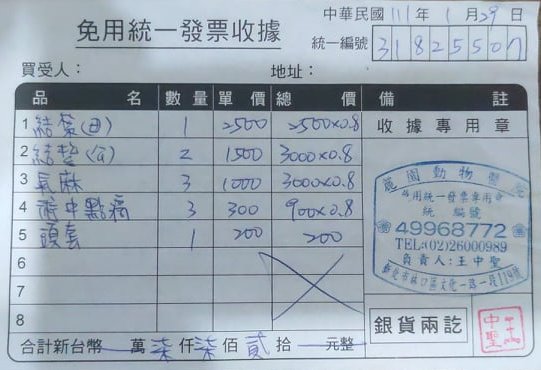 免用統一發票收據
中華民國 111 年 1 月 29 日
統一編號 31825507
買受人： 地址：
品 名 數量 單價 總價 備註
1 結紮(母) 1 2500 2500×0.8
收據專用章
2 結紮(公) 2 1500 3000×0.8
3 氣麻 3 1000 3000×0.8
4 術中點滴 3 300 900×0.8
5 頭套 1 200 200
6
7
8
動物醫院
免用統一發票專用章
統一編號
49968772
TEL:(02)26000989
負責人:王中聖
新北市林口區文化一路一段119號
銀貨兩訖
王中聖
合計新台幣 萬 柒 仟 柒 佰 貳 拾 元整